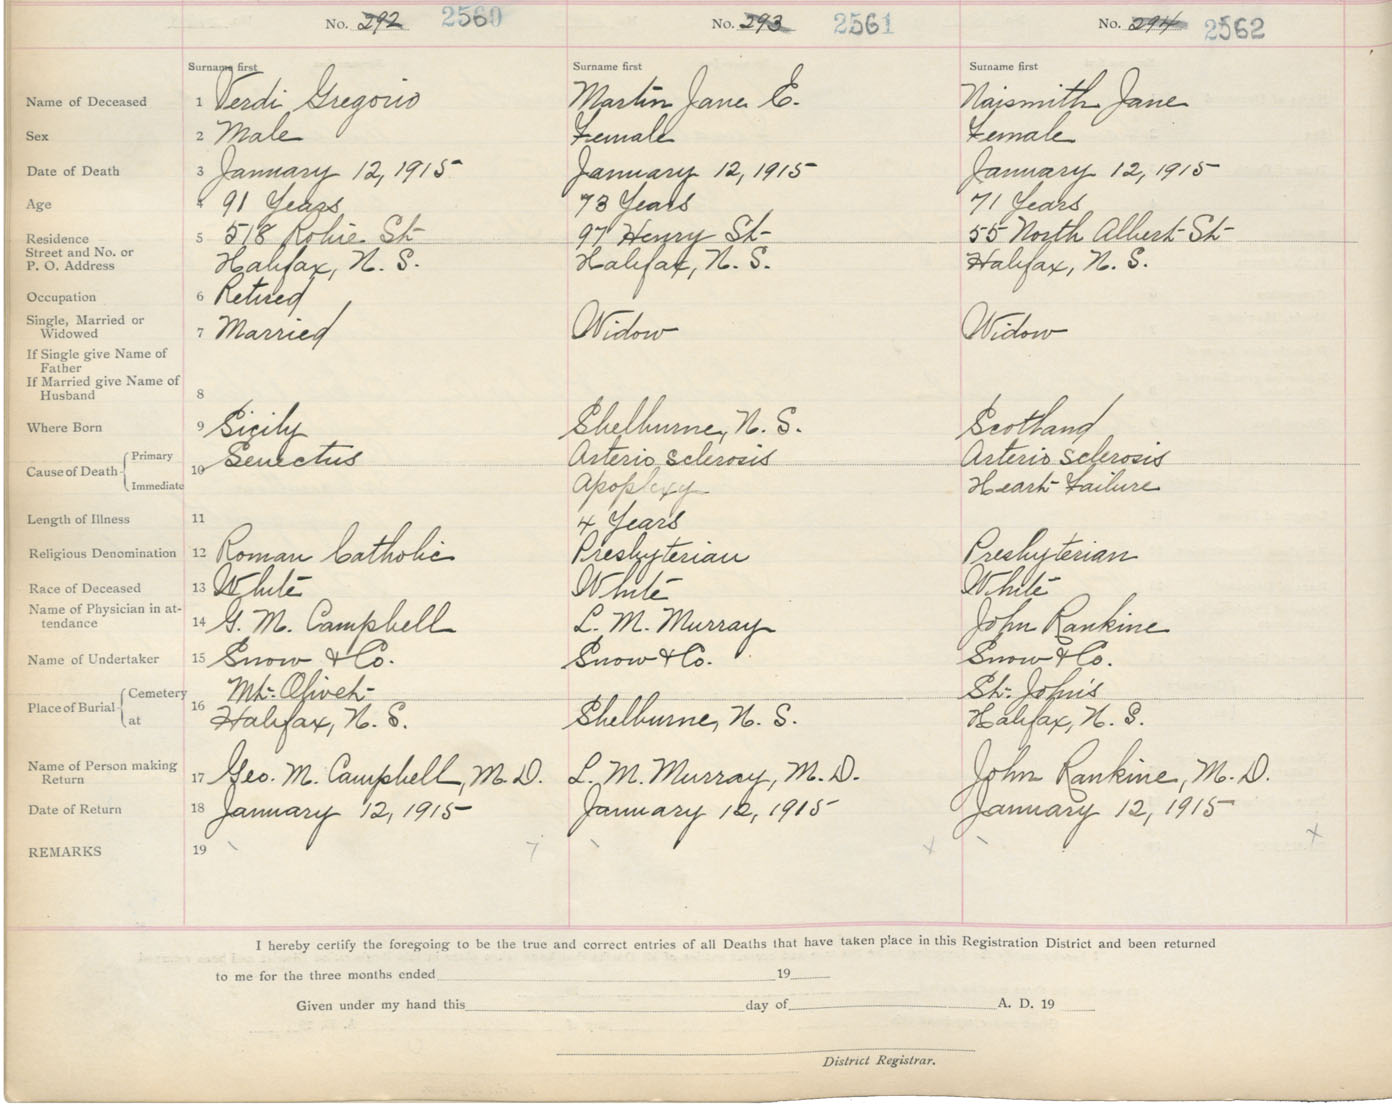 No. 292 2560 No. 293 2561 No. 294 2562
Surname first Surname first Surname first
Name of Deceased 1 Verdi Gregorio Martin Jane E. Naismith Jane
Sex 2 Male Female Female
Date of Death 3 January 12, 1915 January 12, 1915 January 12, 1915
Age 4 91 Years 73 Years 71 Years
Residence 5 518 Robie St. 97 Henry St. 55 North Albert St.
Street and No. or
P. O. Address Halifax, N. S. Halifax, N. S. Halifax, N. S.
Occupation 6 Retired
Single, Married or
Widowed 7 Married Widow Widow
If Single give Name of
Father
If Married give Name of
Husband 8
Where Born 9 Sicily Shelburne, N. S. Scotland
Cause of Death Primary 10 Senectus Arterio sclerosis Arterio sclerosis
Immediate Apoplexy Heart Failure
Length of Illness 11 4 Years
Religious Denomination 12 Roman Catholic Presbyterian Presbyterian
Race of Deceased 13 White White White
Name of Physician in at-
tendance 14 G. M. Campbell L. M. Murray John Rankine
Name of Undertaker 15 Snow & Co. Snow & Co. Snow & Co.
Place of Burial Cemetery 16 Mt. Olivet St. John's
at Halifax, N. S. Shelburne, N. S. Halifax, N. S.
Name of Person making
Return 17 Geo. M. Campbell, M.D. L. M. Murray, M.D. John Rankine, M.D.
Date of Return 18 January 12, 1915 January 12, 1915 January 12, 1915
REMARKS 19
I hereby certify the foregoing to be the true and correct entries of all Deaths that have taken place in this Registration District and been returned
to me for the three months ended 19
Given under my hand this day of A. D. 19
District Registrar.